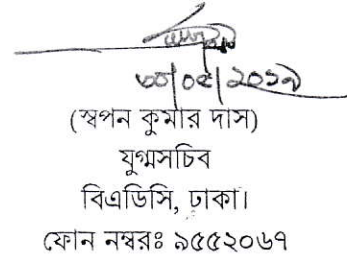 ৩০/০৫/২০১৯
(স্বপন কুমার দাস)
যুগ্মসচিব
বিএডিসি, ঢাকা।
ফোন নম্বরঃ ৯৫৫২০৬৭